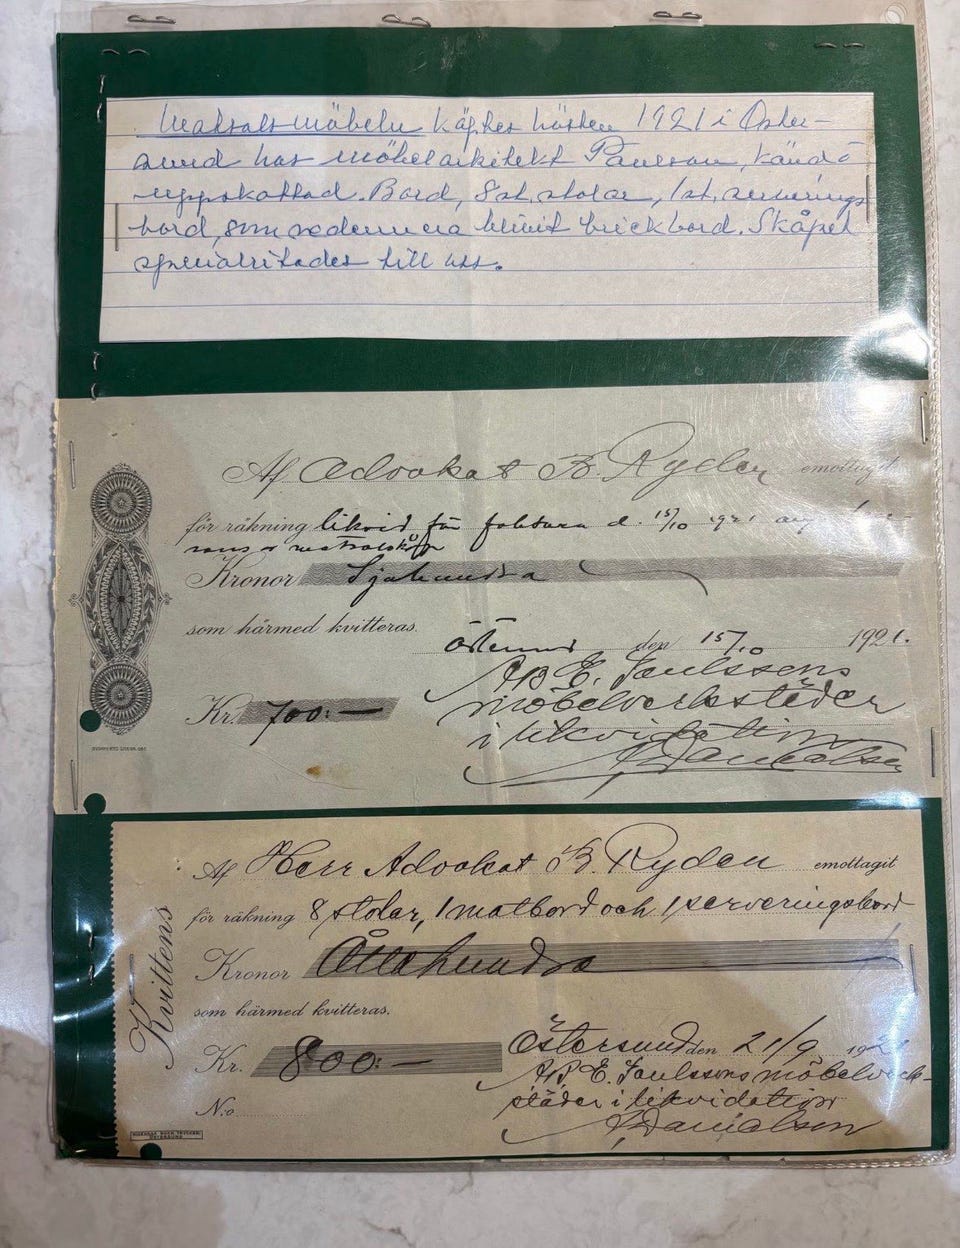 Matsalsmöbeln köptes hösten 1921 i Öster-
sund hos möbelarkitekt Paulson, känd o
uppskattad. Bord, 8 st. stolar, 1 st. serverings
bord, som sedermera blivit brickbord. Skåpet
specialritades till oss.
Af Advokat B. Ryden emottagit
för räkning likvid för faktura d. 15/10 1921
Kronor Sjuhundra
som härmed kvitteras.
Östersund den 15/10 1921.
AB E. Paulssons
möbelverkstäder
Kr. 700:—
i likvidation
Danielson
Kvittens
Af Herr Advokat B. Ryden emottagit
för räkning 8 stolar, 1 matbord och 1 serveringsbord
Kronor Åttahundra
som härmed kvitteras.
Östersund den 21/9 1921
Kr. 800:—
AB. E. Paulssons möbelverk-
städer i likvidation
N:o
Danielson